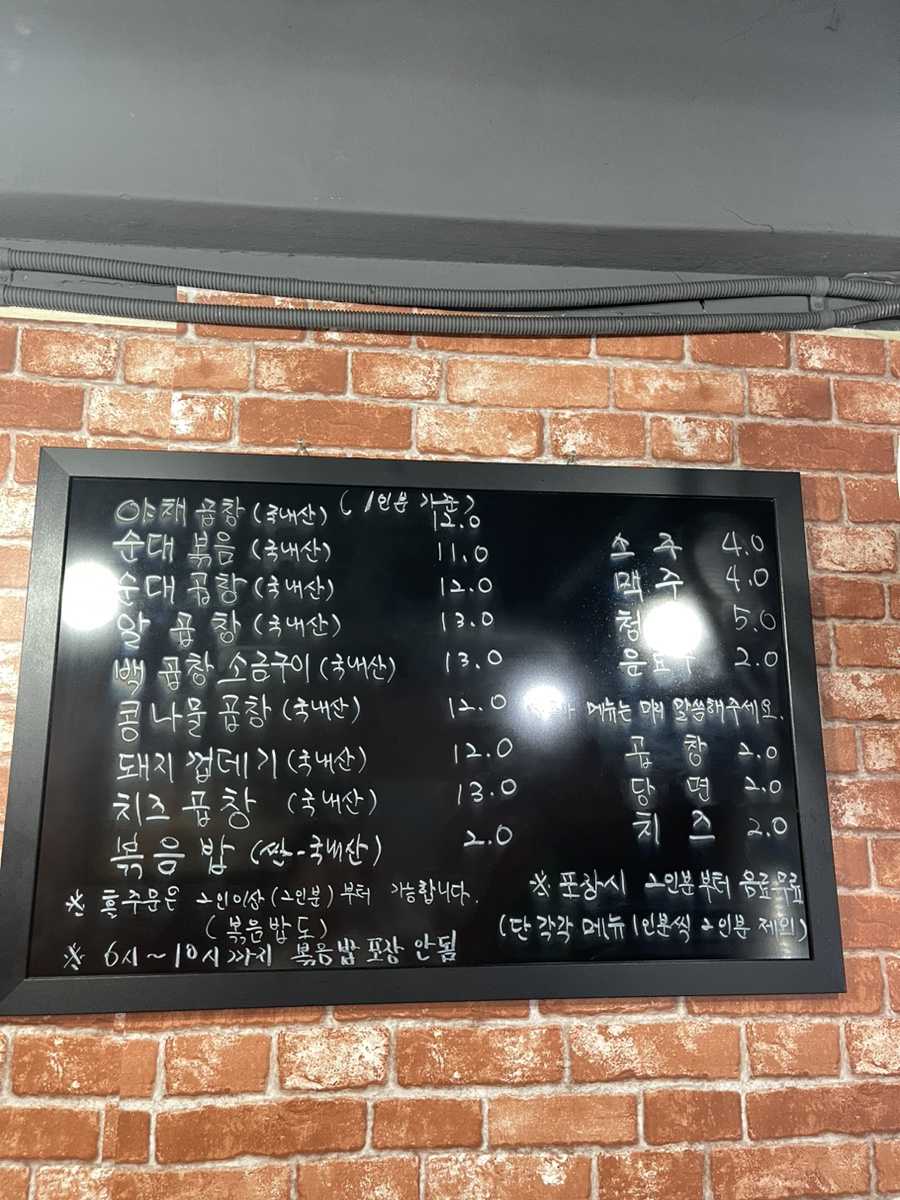 ( 1인분 기준)
야채 곱창 (국내산) 12.0
순대 볶음 (국내산) 11.0
순대 곱창 (국내산) 12.0
알 곱창 (국내산) 13.0
백 곱창 소금구이 (국내산) 13.0
콩나물 곱창 (국내산) 12.0
돼지 껍데기 (국내산) 12.0
치즈 곱창 (국내산) 13.0
볶음밥 (쌀-국내산) 2.0
※ 홀주문은 2인이상 (2인분) 부터 가능합니다.
(볶음밥도)
※ 6시~10시까지 볶음밥 포장 안됨
소 주 4.0
맥 주 4.0
청 5.0
음료수 2.0
메뉴는 미리 말씀해주세요.
곱 창 2.0
당 면 2.0
치 즈 2.0
※ 포장시 2인분부터 음료무료
(단 각각 메뉴 1인분씩 2인분 제외)